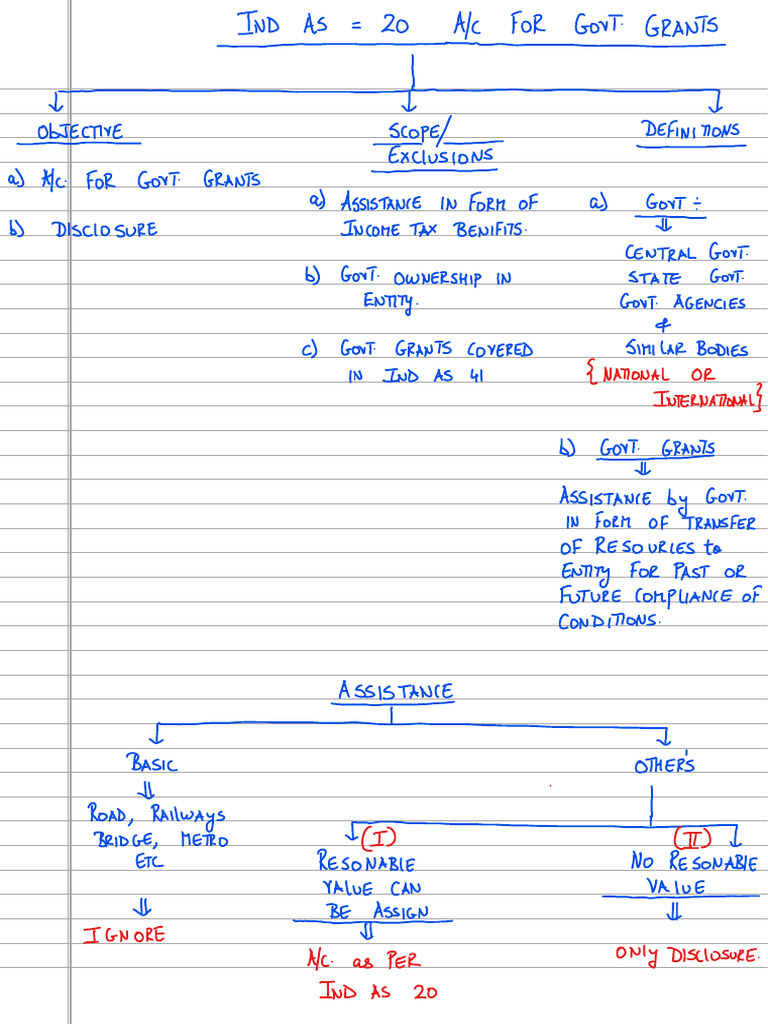 IND AS = 20 A/C FOR GOVT. GRANTS
OBJECTIVE
a) A/C. FOR GOVT. GRANTS
b) DISCLOSURE
SCOPE/
EXCLUSIONS
a) ASSISTANCE IN FORM OF
INCOME TAX BENIFITS.
b) GOVT. OWNERSHIP IN
ENTITY.
c) GOVT. GRANTS COVERED
IN IND AS 41
DEFINITIONS
a) GOVT ÷
⇓
CENTRAL GOVT.
STATE GOVT.
GOVT. AGENCIES
&
SIMILAR BODIES
{NATIONAL OR
INTERNATIONAL}
b) GOVT. GRANTS
⇓
ASSISTANCE by GOVT.
IN FORM OF TRANSFER
OF RESOURIES to
ENTITY FOR PAST OR
FUTURE COMPLIANCE OF
CONDITIONS.
ASSISTANCE
BASIC
⇓
ROAD, RAILWAYS
BRIDGE, METRO
ETC
⇓
IGNORE
OTHER'S
(I)
RESONABLE
VALUE CAN
BE ASSIGN
⇓
A/C. as PER
IND AS 20
(II)
NO RESONABLE
VALUE
⇓
ONLY DISCLOSURE.